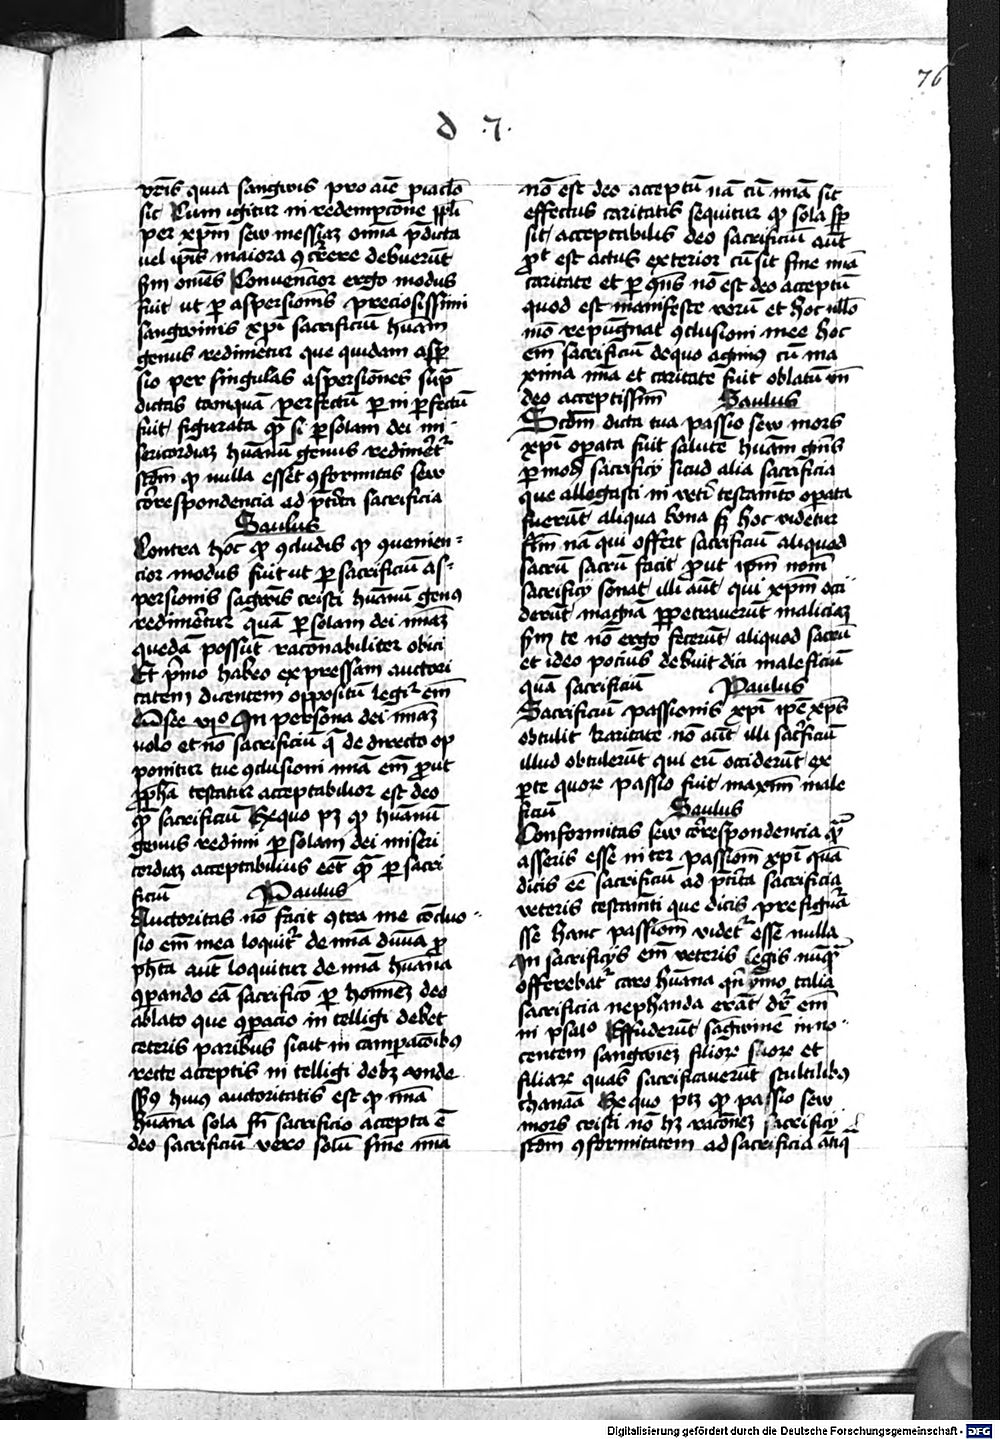 76
d .7.
vr̄is quia sangwis pro aīe piaclo
sit Cum igitur in redempcōne ppli
per xpm̄ sew messiaz om̄ia pdicta
uel ipīs maiora ꝯcr̄rere debuerūt
sm̄ om̄es Convencior ergo modus
fuit ut per aspersionis preciosissimi
sangwinis xpī sacrificiū huām
genus redimētur que quidam asp̄
sio per singulas aspersiones sup̄
dictas tamquā perfectū per inperfectū
fuit figurata qꝫ si per solam dei mi-
sericordiaz huānū genus redimet̄ꝛ
scdm̄ qꝫ nulla esset ꝯformitas sew
cōrespondencia ad ptīta sacrificia
Saulus
Contra hoc qꝫ ꝯcludis qꝫ ꝯuenien=
cior modus fuit ut per sacrificiū as=
persionis sāgwis cristi huānū genꝰ
redimeretur quā per solam dei mīaz
quedā possūt racōnabiliter obici
Et p̄mo habeo expressam auctori
tatem dicentem oppositū legit̄ em̄
Osee vjo In persona dei mīaz
uolo et nō sacrificiū q̄ de directo op
ponitur tue ꝯclusioni mīa em̄ prout
pph̄a testatur acceptabilior est deo
qꝫ sacrificiū Ex quo ptꝫ qꝫ huānū
genus redimi per solam dei miseri
cordiaz acceptabilius eēt qꝫ per sacri
ficiū
Paulus
Auctoritas nō facit ꝯtra me cōcluo=
sio em̄ mea loquit̄ de mīa diuīa pro
ph̄ta aūt loquitur de mīa huāna
ꝯpando eā sacrifico per hominez deo
ablato que ꝯpacio intelligi debet
ceteris paribus sicut in campacōibꝰ
recte acceptis intelligi debꝫ vnde
sꝫꝰ huiꝰ auctoritatis est qꝫ mīa
huāna sola sn̄ sacrificio accepta ē
deo sacrificiū vero solū sine mīa
nō est deo acceptū nā cū mīa sit
effectus caritatis sequitur qꝫ sola sp̄
sit acceptabilis deo sacrificiū aūt
prout est actus exterior cū sit sine mīa
caritate et per qn̄s nō est deo acceptū
quod est manifeste verū et hoc nullo
mō repugnat ꝯclusioni mee hoc
em̄ sacrificiū de quo agimꝰ cū ma
xima mīa et caritate fuit oblatū vn̄
deo acceptissim̄
Saulus
Scdm̄ dicta tua passio sew mors
xpī opata fuit salutē huām gn̄is
per mod̄ sacrificy sicud alia sacrificia
que allegasti in vetī testamēto operata
fuerūt aliqua bona sꝫ hoc videtur
fm̄ nā qui offert sacrificiū aliquod
sacrū sacrū facit prout ipm̄ nom̄
sacrificy sonat illi aūt qui xpm̄ occi
derūt magnā perpetraverūt maliciaz
sm̄ te nō ergo fecerūt aliquod sacrū
et ideo pocius debuit dici maleficiū
quā sacrificiū
Paulus
Sacrificiū passionis xpī ipe xp̄s
obtulit karitate nō aūt illi sacrificiū
illud obtulerūt qui eū occiderūt ex
perte quorꝫ passio fuit maxim̄ male
ficiū
Saulus
Conformitas sew cōrespondencia qꝫ
asseris esse inter passiom̄ xpī quā
dicis eē sacrificiū ad ptīta sacrificia
veteris testamēti que dicis prefigurā
sse hanc passiom̄ videt̄ esse nulla
In sacrificijs em̄ veteris legis nūqꝫ
offerebat̄ caro huāna qn̄ ymo talia
sacrificia nephanda erāt dr̄ em̄
in psalo Effuderūt sāgwinē inno=
centem sangwinez filiorꝫ suorꝫ et
filiarꝫ quas sacrificaverūt scultilibꝰ
chanaā Ex quo ptꝫ qꝫ passio sew
mors cristi nō hꝫ racōnez sacrificy
scdm̄ ꝯformitatem ad sacrificia ātiq
Digitalisierung gefördert durch die Deutsche Forschungsgemeinschaft - DFG